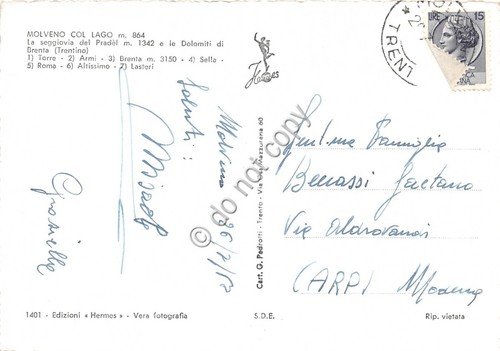 MOLVENO COL LAGO m. 864
La seggiovia del Pradèl m. 1342 e le Dolomiti di
Brenta (Trentino)
1) Torre - 2) Armi - 3) Brenta m. 3150 - 4) Sella -
5) Roma - 6) Altissimo - 7) Lasteri
Hermes
TRENT
LIRE 15
Molveno
Saluti!
Graziella
© do not copy
Cart. G. Pedrotti - Trento - Via Mazzurana 60
Gent.ma Famiglia
Benassi Gaetano
Via Aldrovandi
CARPI Modena
1401 - Edizioni « Hermes » - Vera fotografia
S.D.E.
Rip. vietata